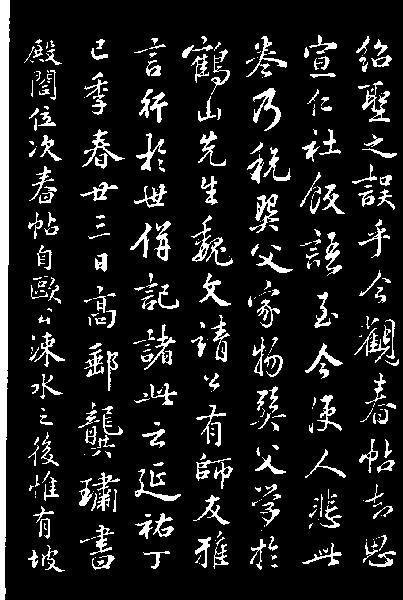 紹聖之誤乎今觀春帖思
宣仁社飯語至今使人悲此
卷乃税巽父家物巽父学於
鶴山先生魏文靖公有師友雅
言行於世併記諸此云延祐丁
巳季春廿三日高郵龔璛書
殿閣位次春帖自歐公涑水之後惟有坡